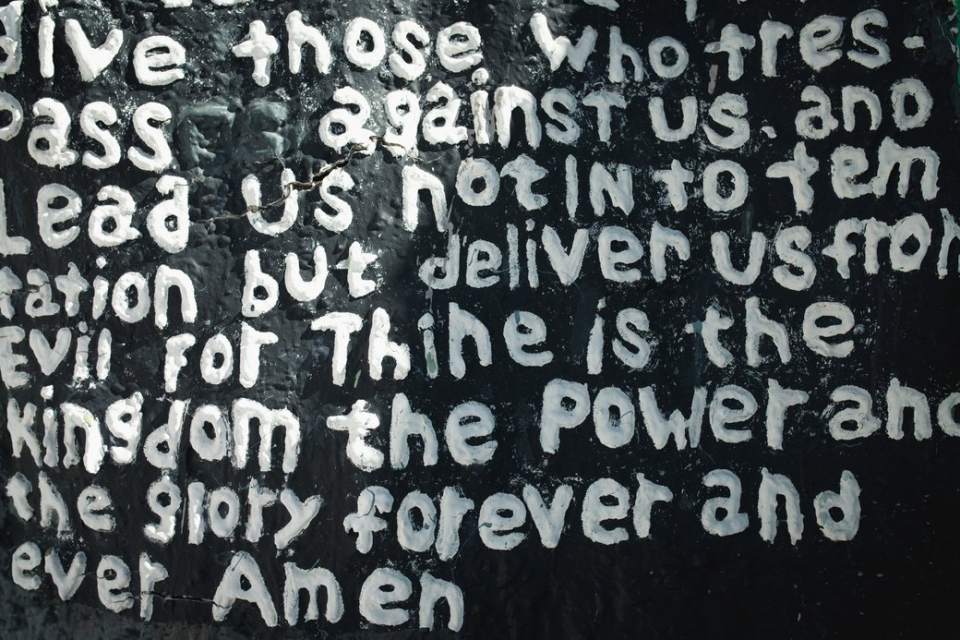 give those who tres-
pass against us. and
Lead us not INto tem
tation but deliver us from
Evil for Thine is the
kingdom the Power and
the glory forever and
ever Amen